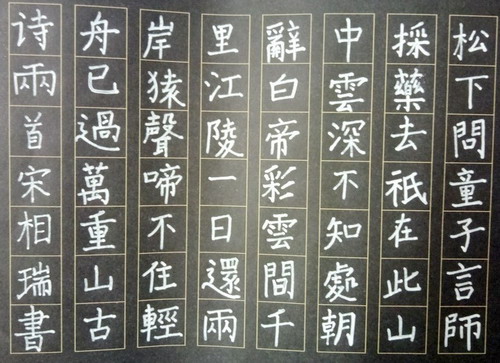 松下問童子言師
採藥去祇在此山
中雲深不知處朝
辭白帝彩雲間千
里江陵一日還兩
岸猿聲啼不住輕
舟已過萬重山古
诗兩首宋相瑞書